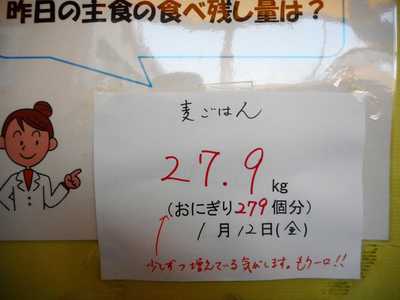 昨日の主食の食べ残し量は？
麦ごはん
27.9 kg
(おにぎり279個分)
1月12日(金)
少しずつ増えている気がします。もう一口!!